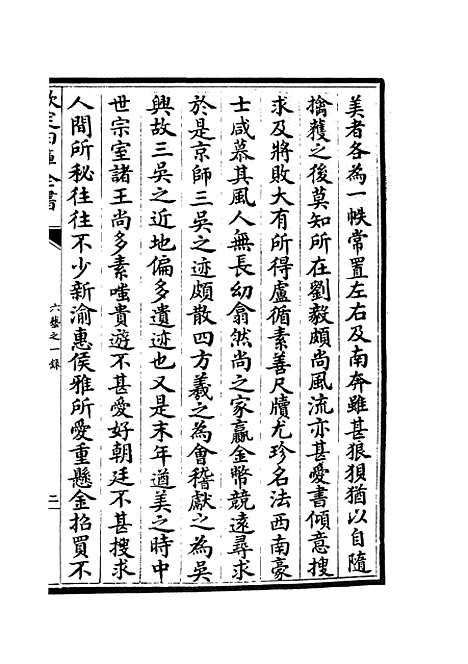 美者各為一帙常置左右及南奔雖甚狼狽猶以自隨
擒獲之後莫知所在劉毅頗尚風流亦甚愛書傾意搜
求及將敗大有所得盧循素善尺牘尤珍名法西南豪
士咸慕其風人無長幼翕然尚之家贏金幣競遠尋求
於是京師三吳之迹頗散四方羲之為會稽獻之為吳
興故三吳之近地偏多遺迹也又是末年遒美之時中
世宗室諸王尚多素嗤貴遊不甚愛好朝廷不甚搜求
人間所秘往往不少新渝惠侯雅所愛重懸金招買不
欽定四庫全書
六藝之一録
二